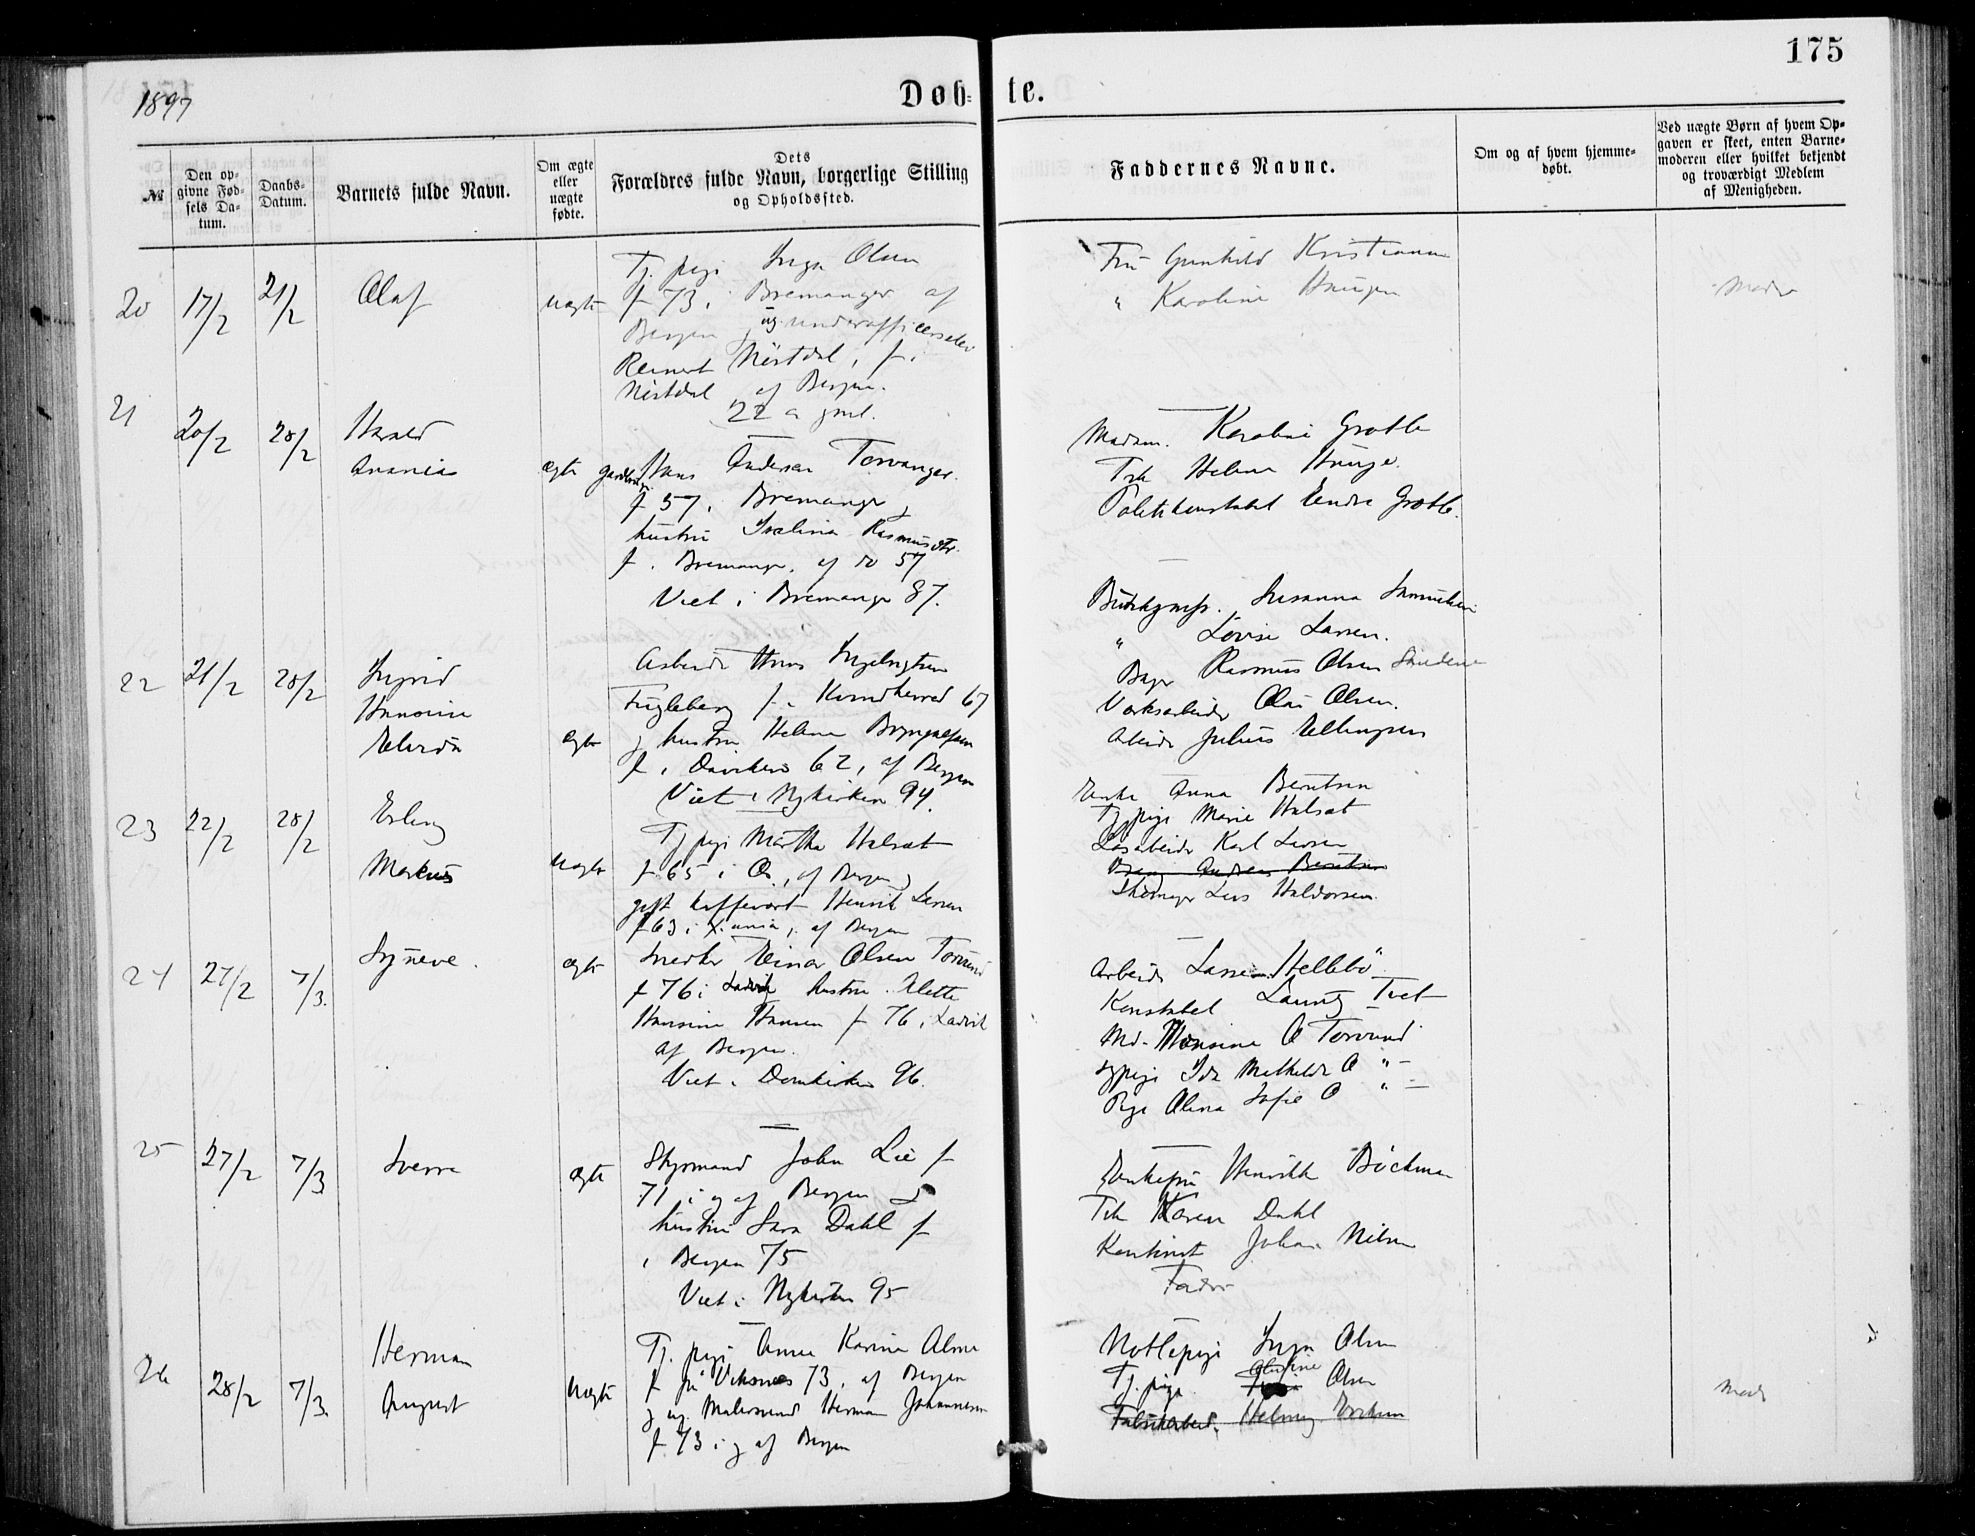 175
1897
Døb-te.
№
Den op-
givne Fød-
sels Da-
tum.
Daabs-
Datum.
Barnets fulde Navn.
Om ægte
eller
uægte
fødte.
Dets
Forældres fulde Navn, borgerlige Stilling
og Opholdssted.
Faddernes Navne.
Om og af hvem hjemme-
døbt.
Ved uægte Børn af hvem Op-
gaven er skeet, enten Barne-
moderen eller hvilket bekjendt
og troværdigt Medlem
af Menigheden.
20 17/2 21/2 Olaf uægte
Tj. pige Inga Olsen
f 73 i Bremanger af
Bergen ug. underofficerselev
Reinert Nistdal, f. i
Nistdal af Bergen.
22 a gml.
Fru Gunhild Kristiansen
" Karoline Haugen
Moder
21 20/2 28/2 Harald
Ananias ægte
Hans Andersen Torvanger
f 57 i Bremanger
hustru Rasmusdtr.
f. i Bremanger, af do 57
Viet i Bremanger 87.
Madam. Karoline Grotle
Frk Helene Hauge.
Politikonstabel Endre Grotle.
22 21/2 28/2 Ingrid
Hansine
ægte
Arbeider Hans
Fugleberg f. i Kvindherred 67
g hustru Helene
f. i Daviken 62, af Bergen
Viet i Nykirken 94.
Susanna
" Lovise Larsen.
Rasmus Olsen
Værksarbeider Olai Olsen.
Arbeider Julius Ellingsen
23 22/2 28/2 Erling
Markus uægte
Tj pige Martha Halsæt
f. 65 i , af Bergen g
gift kaffevært Henrik Larsen
f 63 i X.ania, af Bergen
Enke Anna Berntsen
Tj pige Marie Halsæt
Løsarbeider Karl Larsen
Andreas Berntsen
Lars Haldorsen
24 27/2 7/3. Synneve. ægte
Snedker Einar Olsen Torvund
f 76 i Ladvik hustru Alette
Hansine Hansen f 76 i Ladvik
af Bergen.
Viet i Domkirken 96.
Arbeider Hellebö
Konstabel Tvet
Md. Hansine O Torvund
sypige Ida Mathilde O " –
Pige Olina Sofie O " –
25 27/2 7/3 Sverre ægte
Styrmand John Lie f
71 i g af Bergen g
hustru Sara Dahl f
i Bergen 75
Viet i Nykirken 95
Enkefru Henrikke Böckman
Frk Karen Dahl
Kontorist Johan Nilsen
Fader
26 28/2 7/3. Herman
August uægte
Tj. pige Anna Karine Olsen
f på Viksnes 73, af Bergen
g ug. Malersvend Herman Johannesen
f. 73 i g af Bergen
Inga Olsen
Tj. pige Olsen
Fabrikarbeid. Helmer
Moder